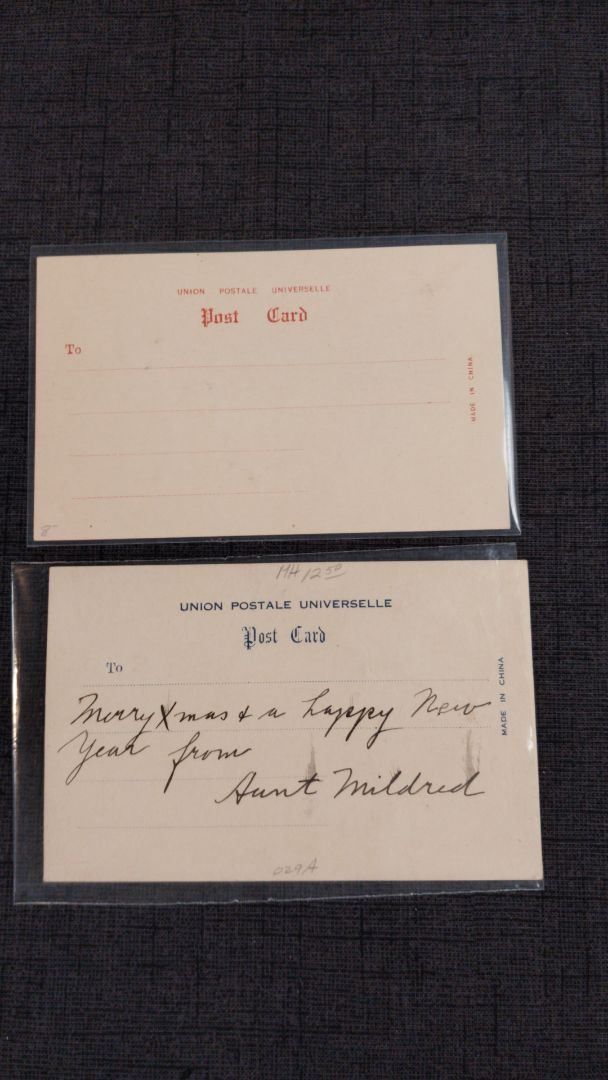 UNION POSTALE UNIVERSELLE
Post Card
To
MADE IN CHINA
8
MH 12.50
UNION POSTALE UNIVERSELLE
Post Card
To
MADE IN CHINA
Merry Xmas & a happy New
Year from
Aunt Mildred
029A